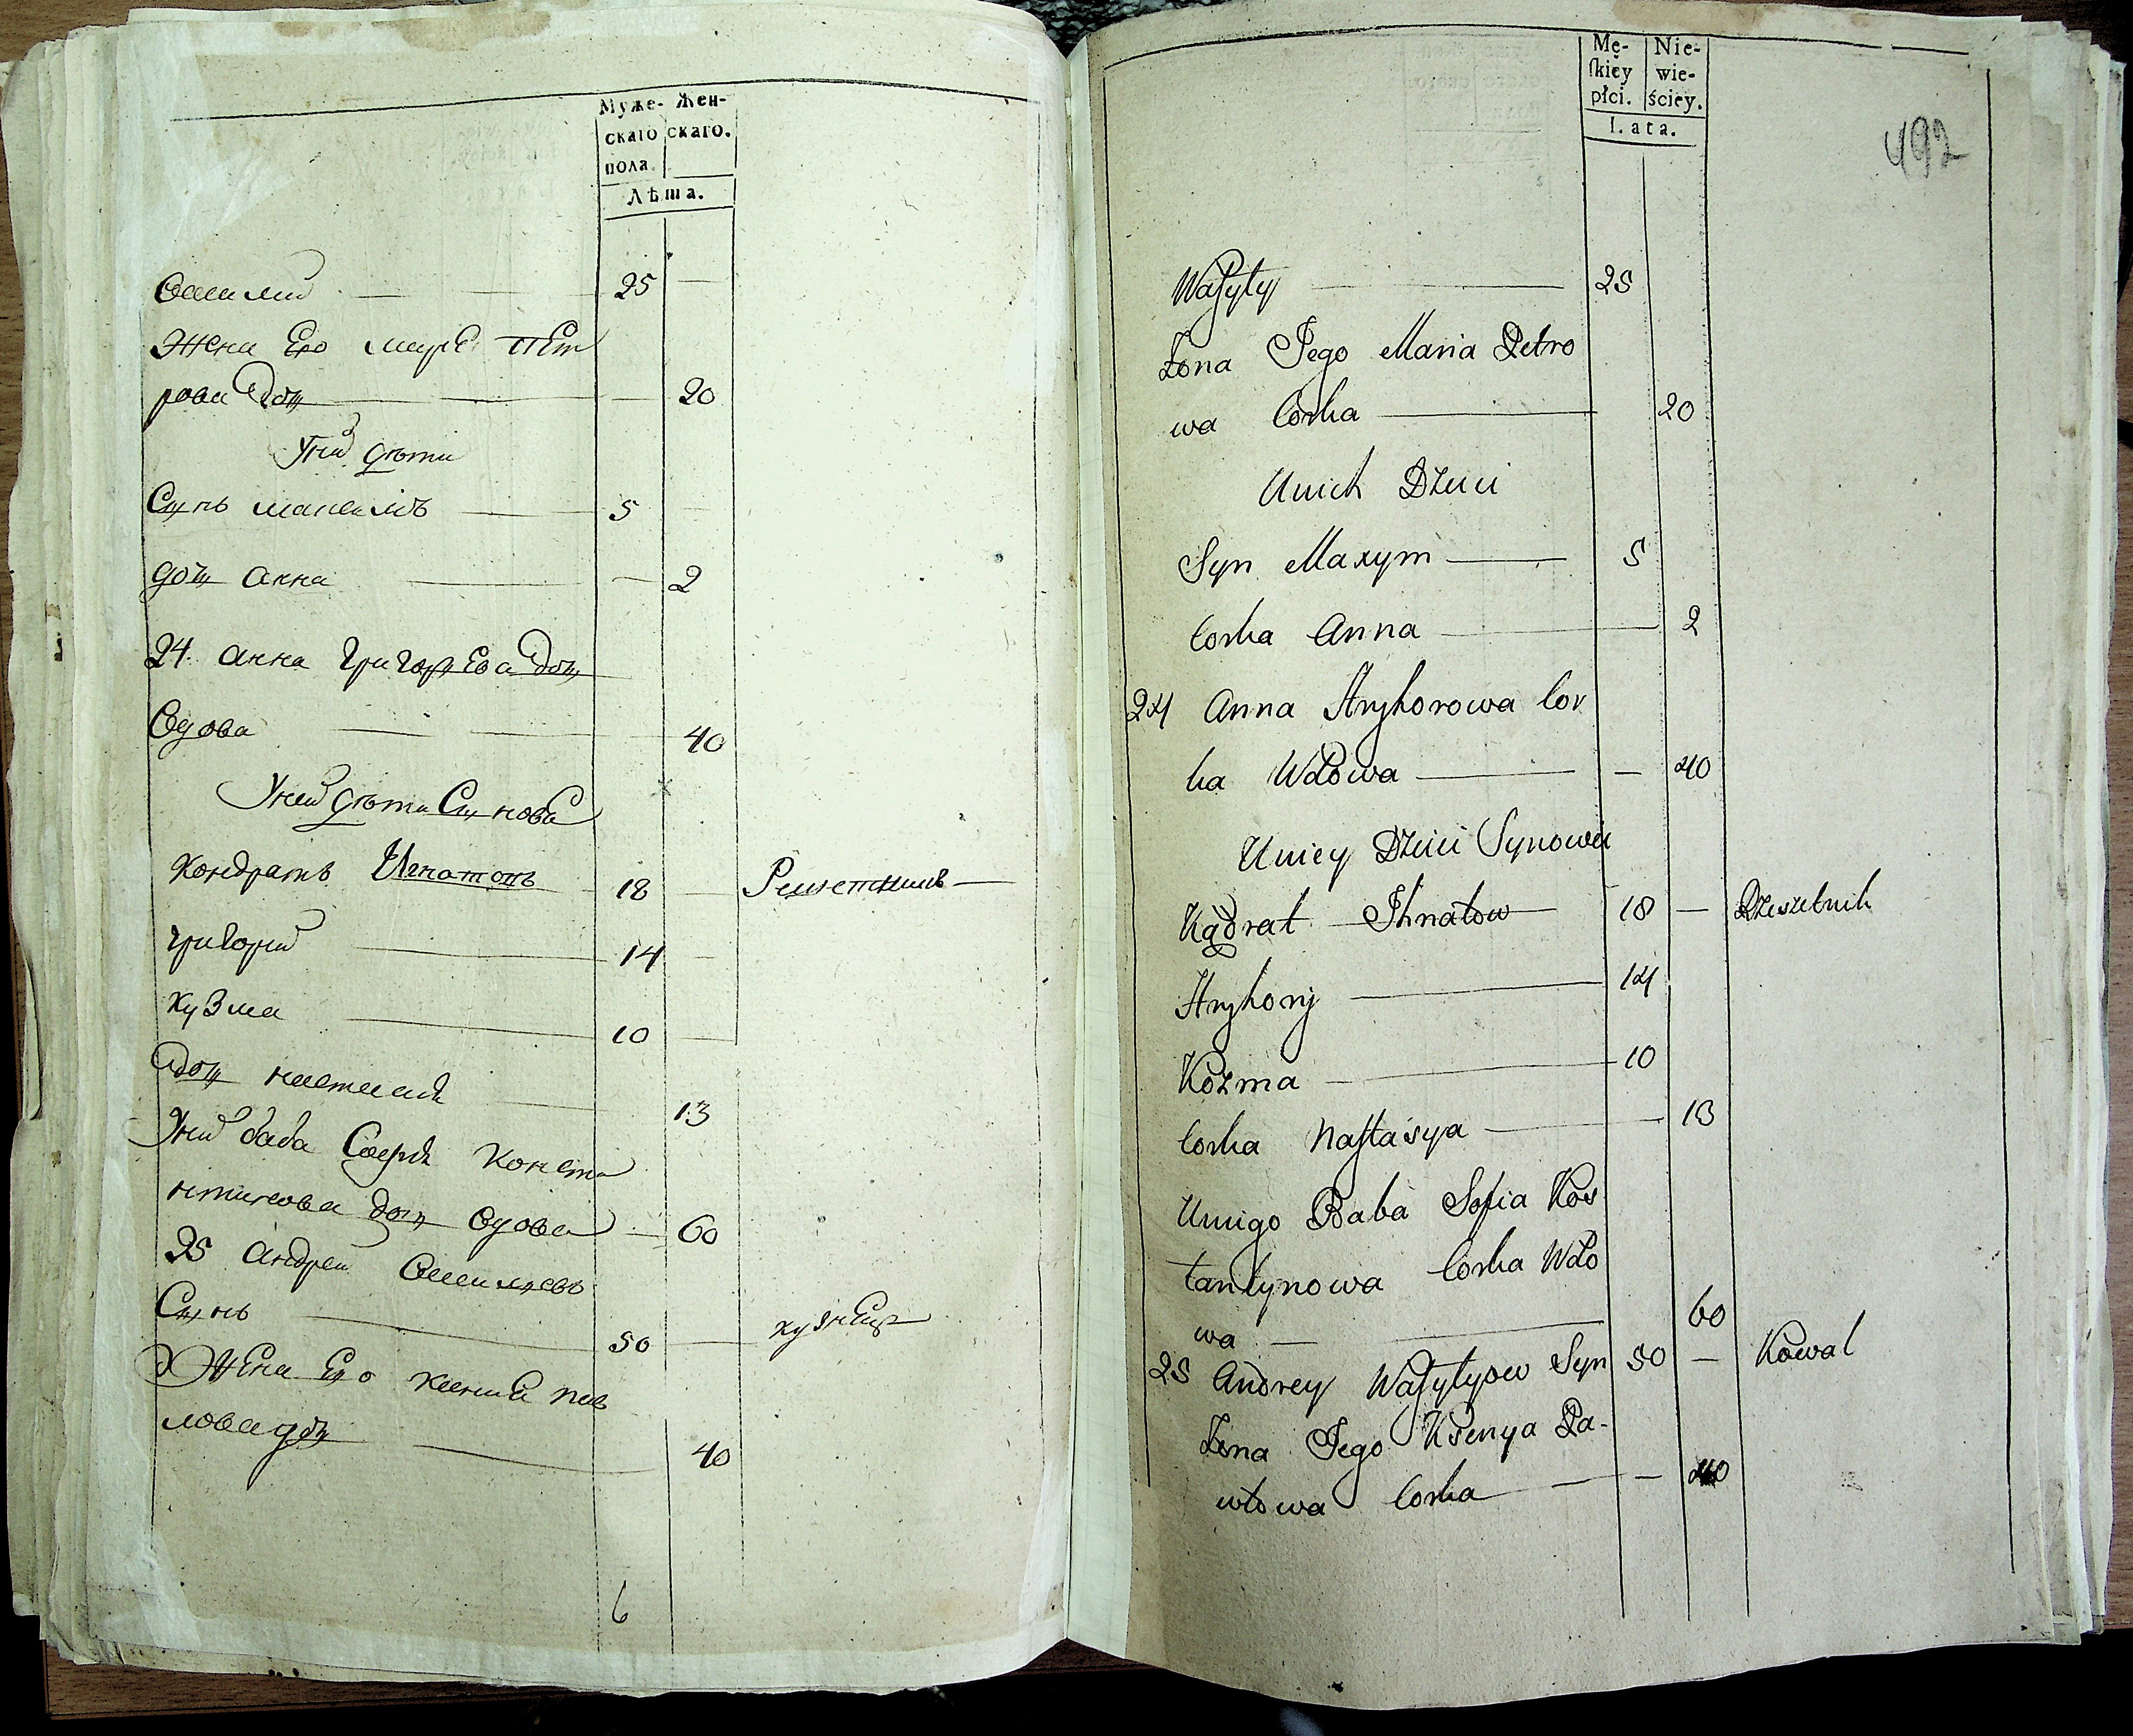 Муже- Жен-
скаго скаго.
пола.
Лѣта.
Василий 25
Жена Его марЕ пЕт
рова дочь 20
Уних дѣти
Сынъ максимъ 5
дочь анна 2
24 анна григорьЕва дочь
Вдова 40
Уней дѣти СыновЕ
Кондратъ Игнатовъ 18 Решетникъ
григорий 14
Кузма 10
дочь настасия 13
Уних баба София Конста
нтинова дочь вдова 60
25 андрей Василиевъ
Сынъ 50 кузнЕцъ
Жена Его Ксения пав
лова дочь 40
6
Mę- Nie-
skiey wie-
płci. ściey.
Lata.
492
Wasyly 25
Żona Jego Maria Petro
wa Corka 20
Unich Dzieci
Syn Maxym 5
Corka Anna 2
24 Anna Hryhorowa Cor
ka Wdowa — 40
Uniey Dzieci Synowie
Kądrat Ihnatow 18 — Drzeszetnik
Hryhory 14
Kozma 10
Corka Nastasya 13
Uniego Baba Sofia Kos
tantynowa Corka Wdo
wa — 60
25 Andrey Wasylyow Syn 50 — Kowal
Żona Jego Ksenya Pa-
włowa Corka — 40